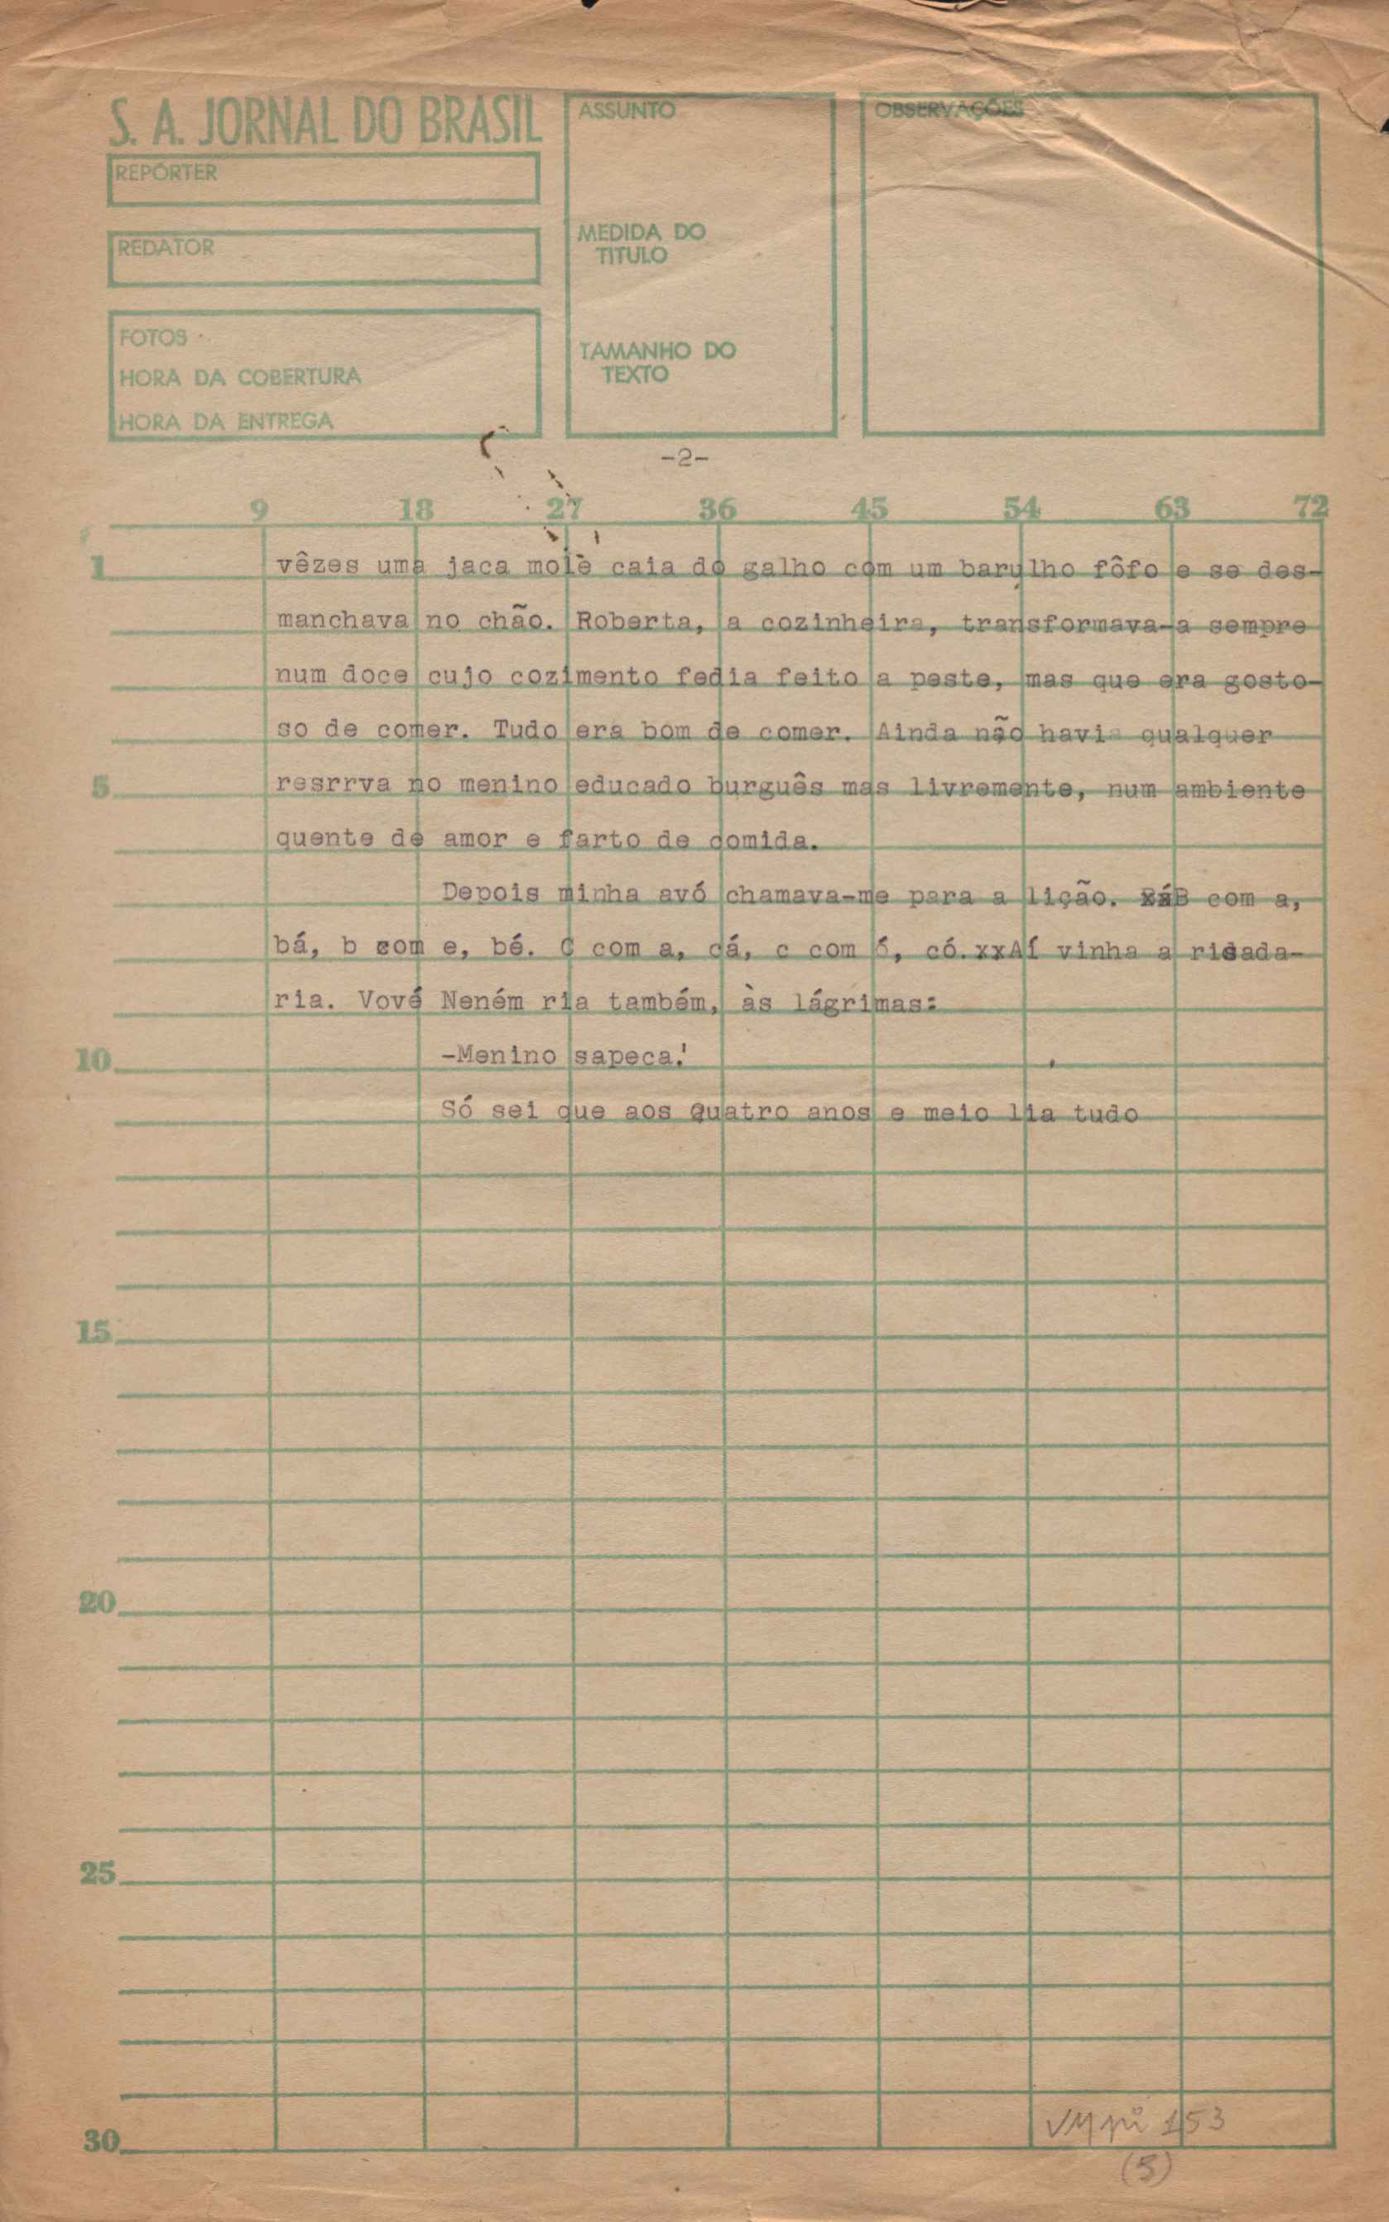 S. A. JORNAL DO BRASIL
REPÓRTER
REDATOR
FOTOS
HORA DA COBERTURA
HORA DA ENTREGA
ASSUNTO
MEDIDA DO
TITULO
TAMANHO DO
TEXTO
OBSERVAÇÕES
-2-
9 18 27 36 45 54 63 72
1 vêzes uma jaca mole caia do galho com um barulho fôfo e se des-
manchava no chão. Roberta, a cozinheira, transformava-a sempre
num doce cujo cozimento fedia feito a peste, mas que era gosto-
so de comer. Tudo era bom de comer. Ainda não havia qualquer
5 resrrva no menino educado burguês mas livremente, num ambiente
quente de amor e farto de comida.
Depois minha avó chamava-me para a lição. B com a,
bá, b com e, bé. C com a, cá, c com ó, có.xxAí vinha a risada-
ria. Vové Neném ria também, às lágrimas:
10 -Menino sapeca!
Só sei que aos quatro anos e meio lia tudo
15
20
25
30
VMpi 153
(5)